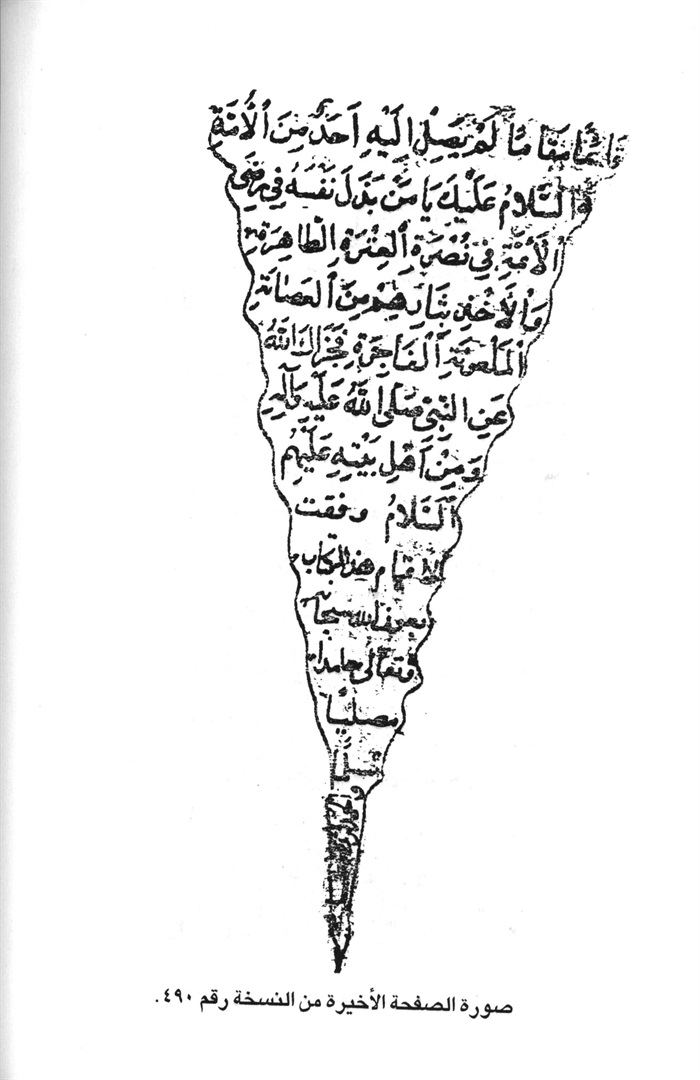 مَقَامًا لَمْ يَصِلْ اِلَيْهِ اَحَدٌ مِنَ الْاُمَّةِ
اَلسَّلَامُ عَلَيْكَ يَا مَنْ بَذَلَ نَفْسَهُ فِي مَرْضَى
الْاَئِمَّةِ فِي نُصْرَةِ الْعِتْرَةِ الطَّاهِرَةِ
وَالْاَخْذِ بِثَارِهِمْ مِنَ الْعِصَابَةِ
الْمَلْعُونَةِ الْفَاجِرَةِ فَجَزَاكَ اللهُ
عَنِ النَّبِىِّ صَلَى اللهُ عَلَيْهِ وَآلِهِ
وَمِنْ اَهْلِ بَيْتِهِ عَلَيْهِمُ
اَلسَّلَامُ وفقت
هذا الكتاب
بعون الله سبحانه
وتعالى حامدا
مصليًا
صورة الصفحة الأخيرة من النسخة رقم ٤٩٠.